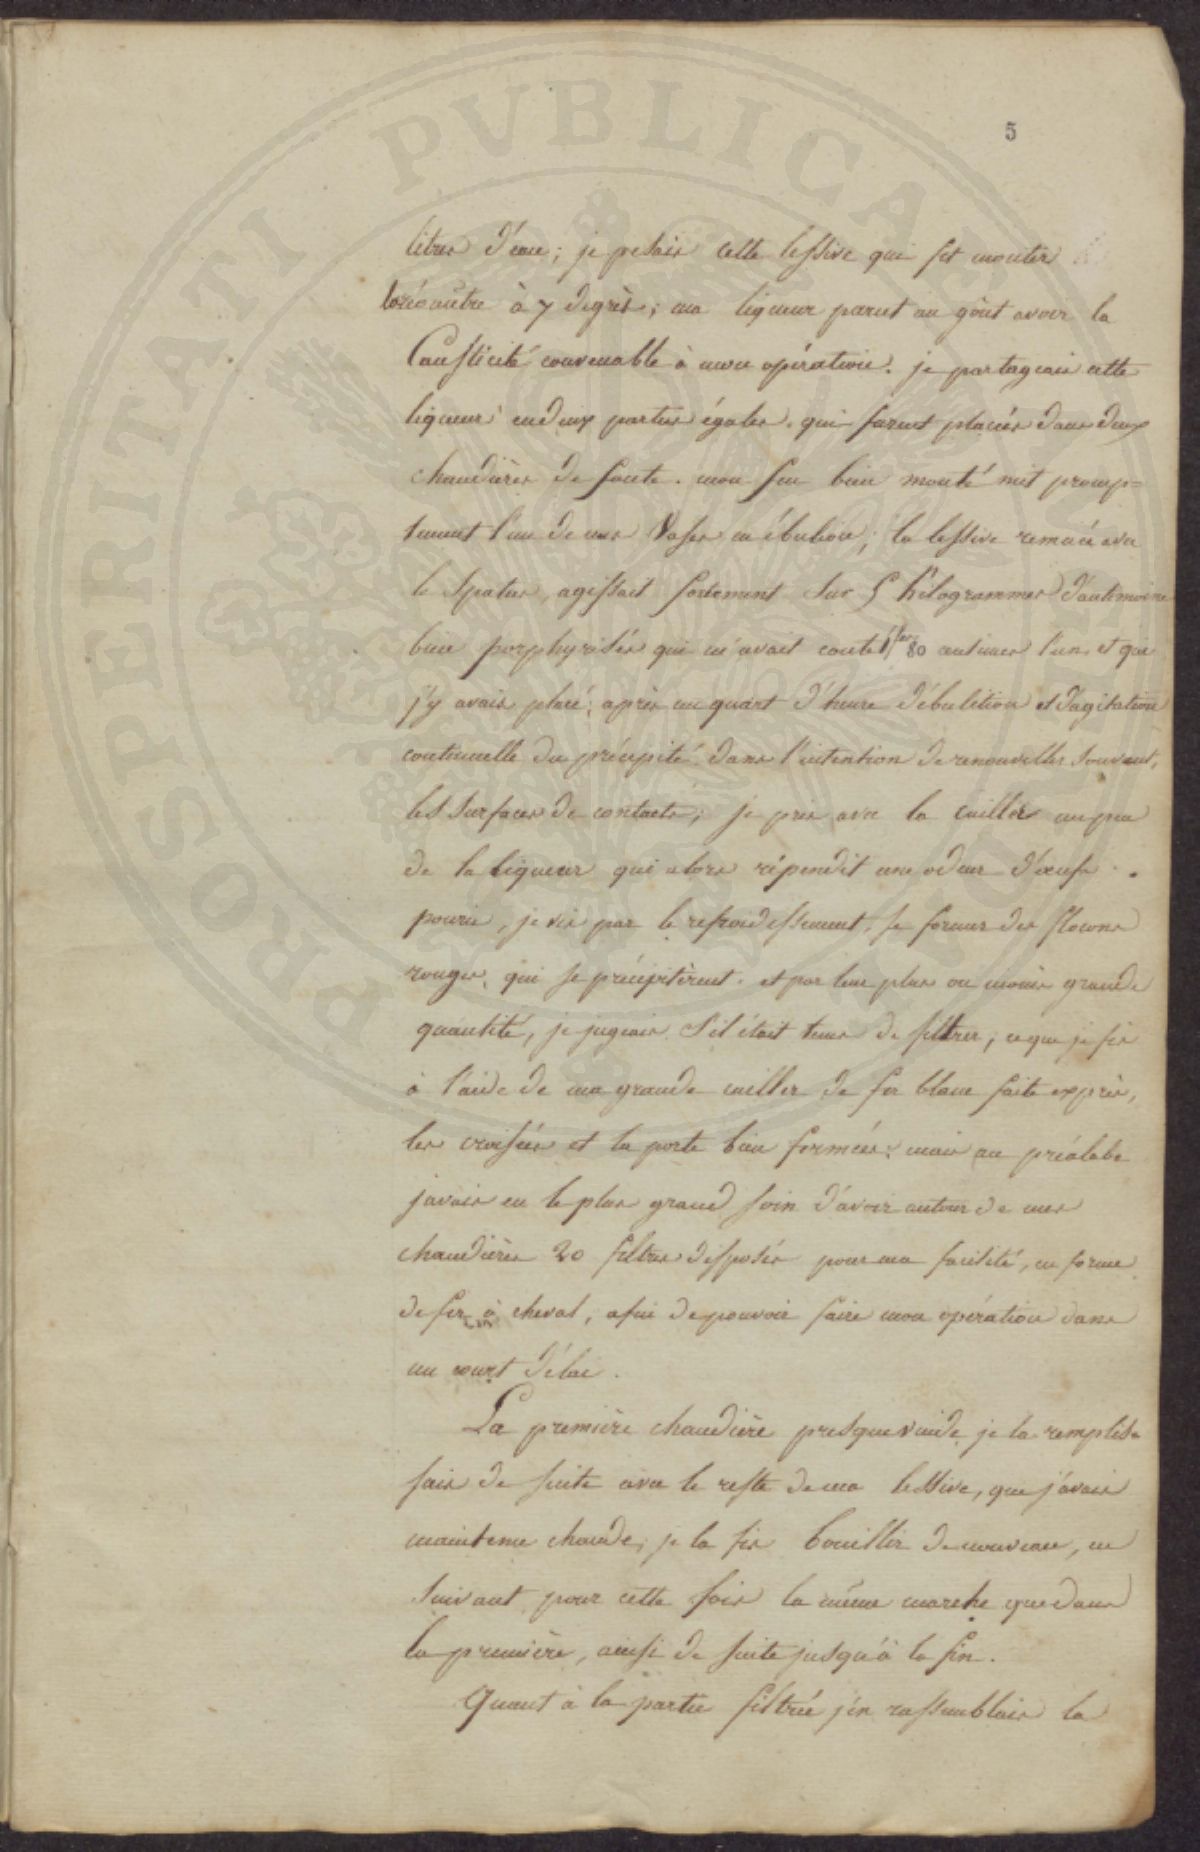 5
litres d'eau; je pesais cette lessive qui fit monter
l'aréomètre à 7 degrès; ma liqueur parut au gôut avoir la
Causticité convenable à mon opération. je partageais cette
liqueur en deux parties égales, qui furent placées dans deux
chaudières de fonte. mon feu bien monté mit promp=
tement l'un de mes Vases en ébulion; la lessive remuée avec
le Spatus, agissait fortement Sur 5 Kilogrammes d'antimoine
bien porphyrisés qui m'avait couté 1 fr 80 centimes l'un, et que
j'y avais placé; après un quart d'heure d'ébulition et d'agitation
continuelle du précipité dans l'intention de renouveller Souvent,
les Surfaces de contacts; je pris avec la cuiller un peu
de la liqueur qui alors répendit une odeur d'œufs
pouris, je vis par le refroidissement, se former des flocons
rouges, qui se précipitèrent. et par leur plus ou moins grande
quantité, je jugeais S'il était tems de filtrer; ce que je fis
à l'aide de ma grande cuiller de fer blanc faite exprès,
les croisées et la porte bien fermées; mais au préalabe
javais eu le plus grand soin d'avoir autour de mes
chaudières 20 filtres disposés pour ma facilité, en forme
de fer à cheval, afin de pouvoir faire mon opération dans
un court délai.
La première chaudière presque vuide, je la remplis=
sais de suite avec le reste de ma lessive, que j'avais
maintenue chaude; je la fis bouillir de nouveau, en
Suivant pour cette fois la même marche que dans
la première, ainsi de suite jusqu'à la fin.
Quant à la partie filtrée j'en rassemblais la
PROSPERITATI PVBLICAE